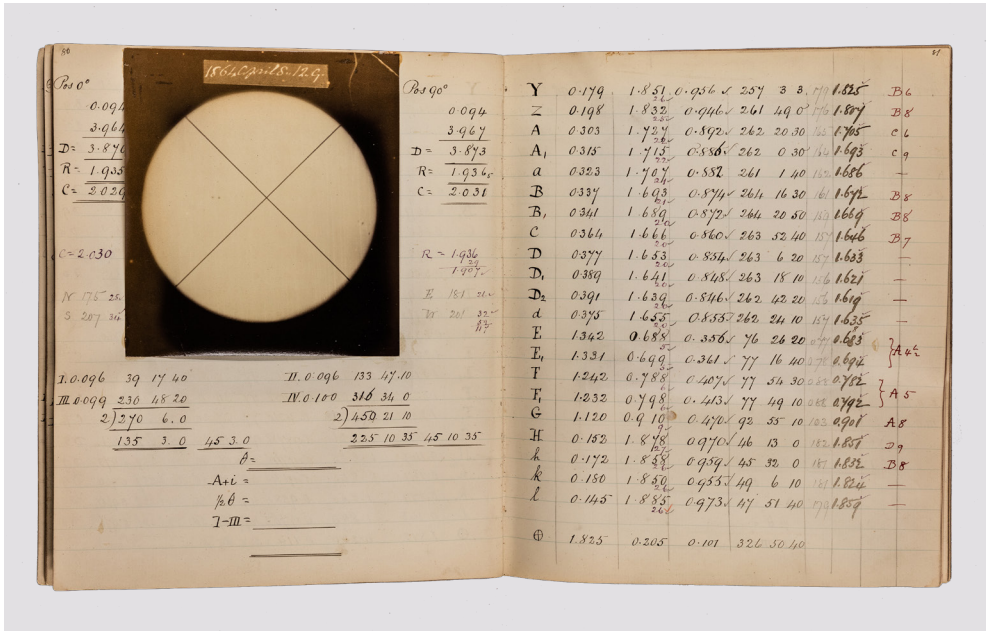 80
Pos 0°
0.094
D=
R= 1.935
C= 2.029
C=2.030
N 175
S 207
Pos 90°
0.094
3.967
D= 3.873
R= 1.936
C= 2.031
R= 1.936
29
1.907
E 181
W 201
I. 0.096 39 17 40
III 0.099 230 48 20
2) 270 6.0
135 3.0 45 3.0
II. 0.096 133 47.10
IV. 0.100 316 34 0
2) 450 21 10
225 10 35 45 10 35
θ=
A+i =
½θ =
I-III =
81
Y 0.179 1.851 0.956 ✓ 257 3 3 1.825 B6
Z 0.198 1.832 0.946 ✓ 261 49 0 1.807 B8
A 0.303 1.727 0.892 ✓ 262 20 30 1.705 C6
A₁ 0.315 1.715 0.886 ✓ 262 0 30 1.693 C9
a 0.323 1.707 0.882 261 1 40 1.686 —
B 0.337 1.693 0.874 ✓ 264 16 30 161 1.672 B8
B₁ 0.341 1.689 0.872 ✓ 264 20 50 1.669 B8
C 0.364 1.666 0.860 ✓ 263 52 40 157 1.646 B7
D 0.377 1.653 0.854 ✓ 263 6 20 157 1.633 —
D₁ 0.389 1.641 0.848 ✓ 263 18 10 156 1.621 —
D₂ 0.391 1.639 0.846 ✓ 262 42 20 156 1.619 —
d 0.375 1.655 0.855 ✓ 262 24 10 157 1.635 —
E 1.342 0.688 0.356 ✓ 76 26 20 0.683
E₁ 1.331 0.699 0.361 ✓ 77 16 40 0.694 A4½
F 1.242 0.788 0.407 ✓ 77 54 30 0.782
F₁ 1.232 0.798 0.413 ✓ 77 49 10 0.792 A5
G 1.120 0.910 0.470 ✓ 92 55 10 103 0.901 A8
H 0.152 1.878 0.970 ✓ 46 13 0 182 1.851 D9
h 0.172 1.858 0.959 ✓ 45 32 0 181 1.832 B8
k 0.180 1.850 0.955 ✓ 49 6 10 1.824 —
l 0.145 1.885 0.973 ✓ 47 51 40 1.859 —
⊕ 1.825 0.205 0.101 326 50 40